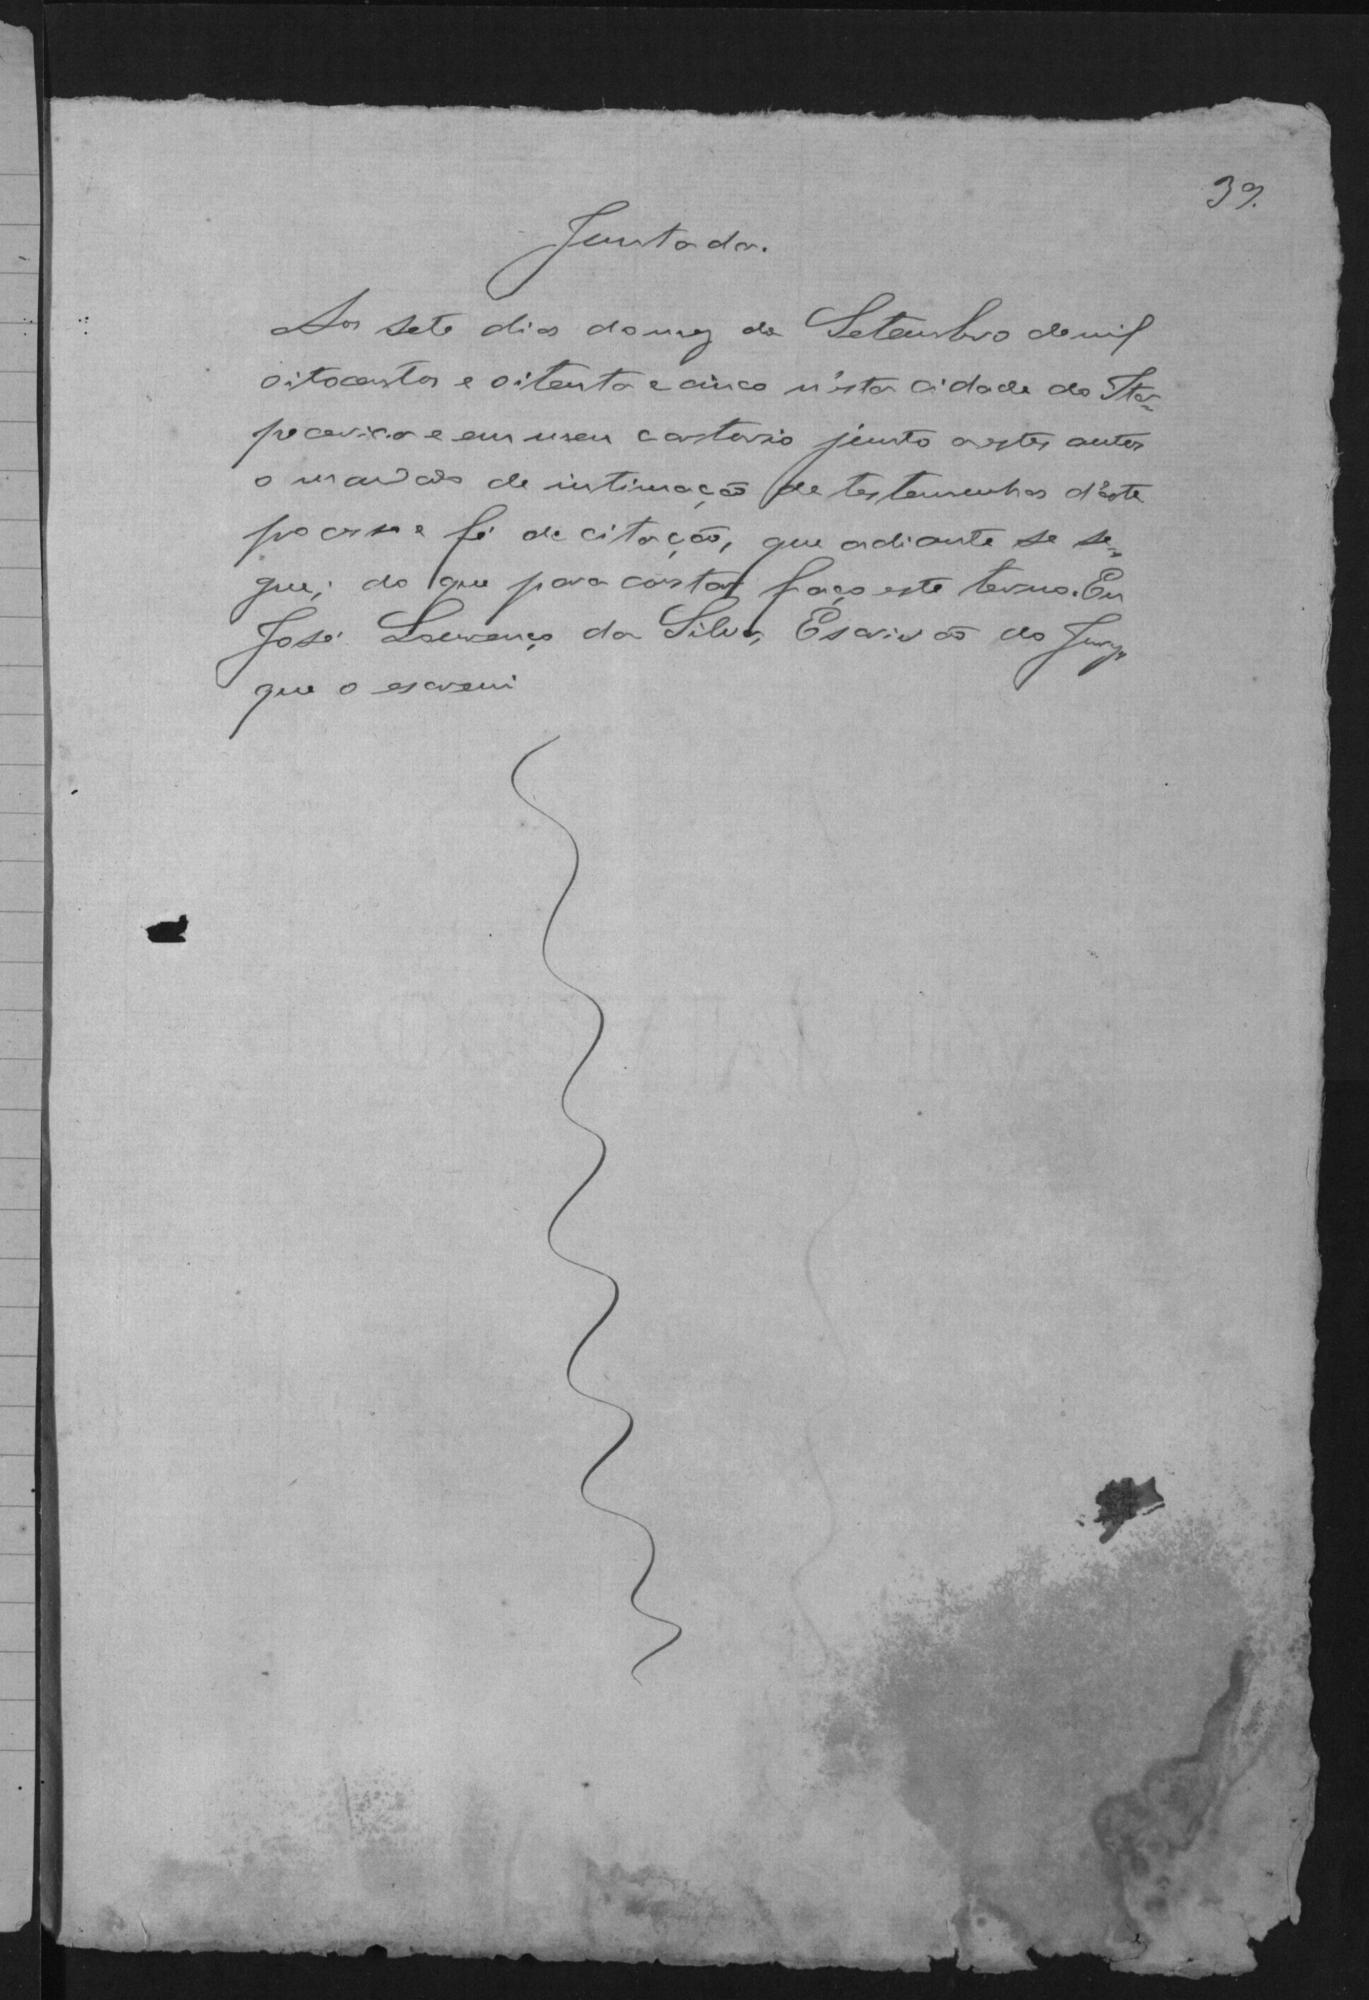 39.
Juntada.
Aos sete dias do mez de Setembro de mil
oitocentos e oitenta e cinco n'esta cidade de Ita-
pecerica e em meu cartorio junto a estes autos
o mandado de intimação de testemunhas d'este
processo e fé de citação, que adiante se se-
gue; do que para constar faço este termo. Eu
José Lourenço da Silva, Escrivão do Jury
que o escrevi